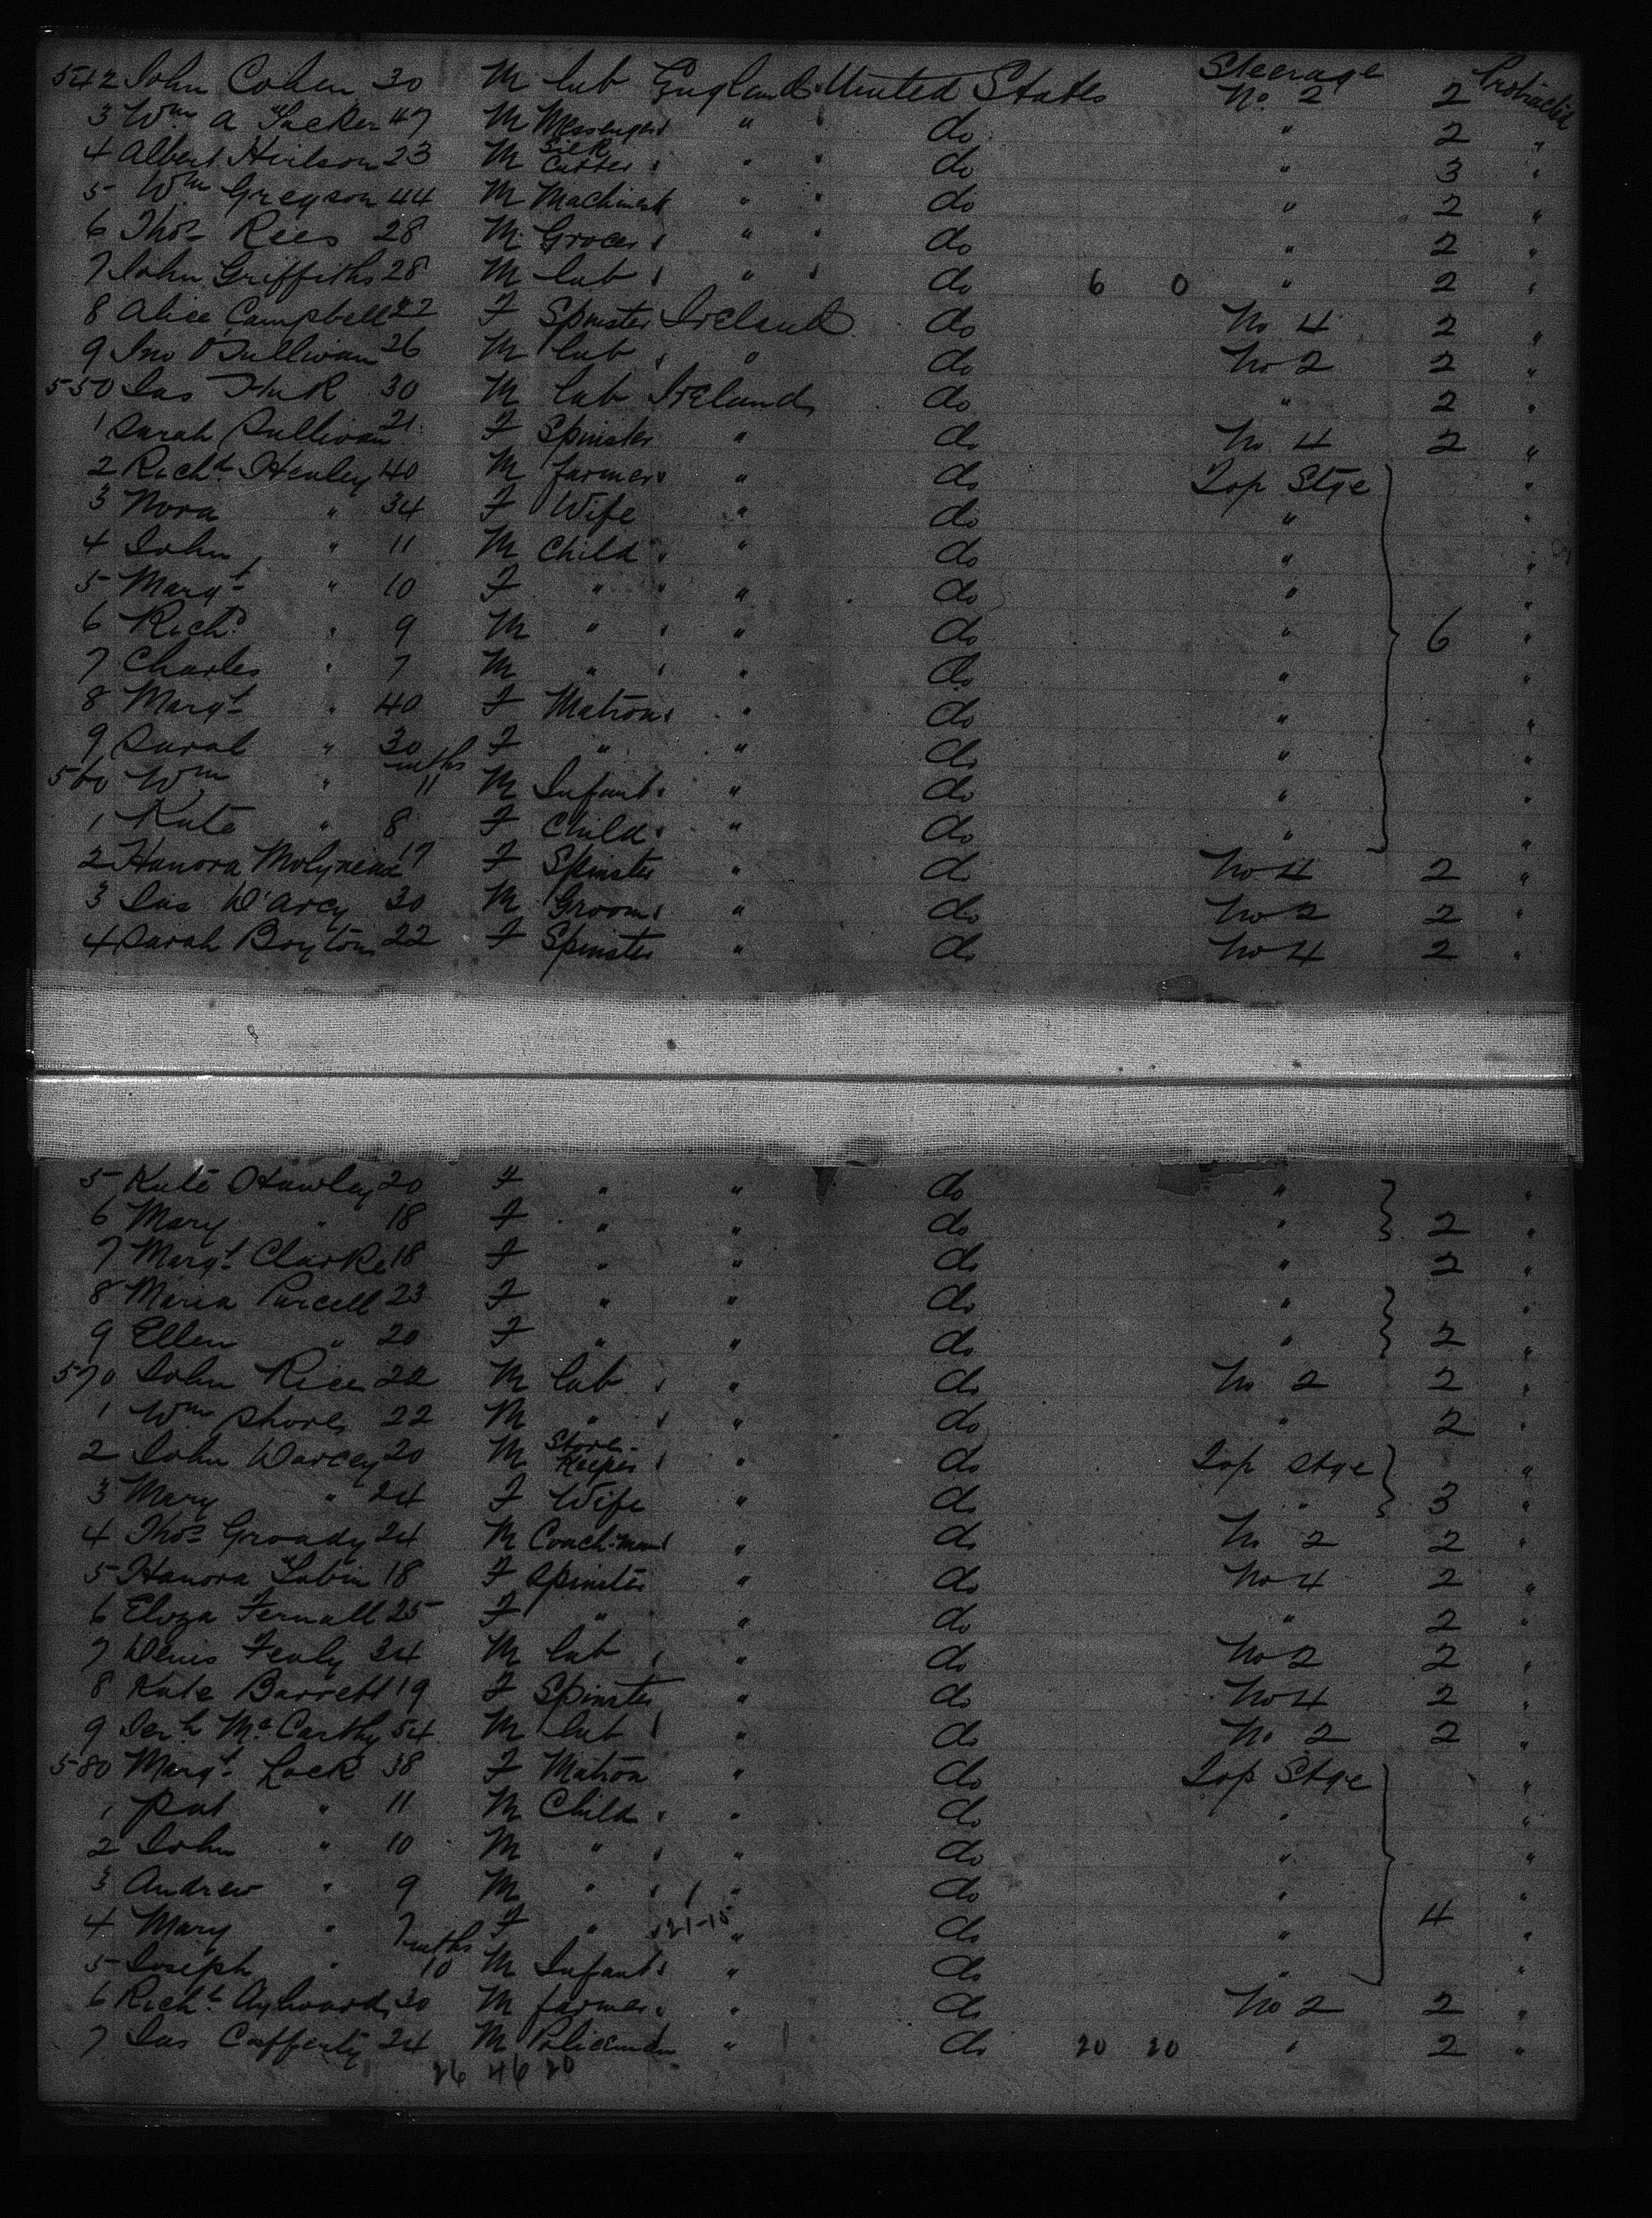 Steerage Protracted
542 John Cohen 30 M lab England United States No. 2 2
3 Wm A Tucker 47 M Messenger " do " 2 "
4 Albert 23 M Silk Cutter " do " 3 "
5 Wm Gregson 44 M Machinest " do " 2 "
6 Thos Rees 28 M Grocer " do " 2 "
7 John Griffiths 28 M lab " do 6 0 " 2 "
8 Alice Campbell 22 F Spinster Ireland do No 4 2 "
9 Jno O'Sullivan 26 M lab " do No 2 2 "
550 Jas 30 M lab Ireland do " 2 "
1 Sarah Sullivan 21 F Spinster " do No 4 2 "
2 Richd Henley 40 M farmer " do Top Stge "
3 Nora " 34 F Wife " do " "
4 John " 11 M Child " do " "
5 Margt " 10 F " " do " "
6 Richd " 9 M " " do " 6 "
7 Charles " 7 M " " do " "
8 Margt " 40 F Matron " do " "
9 Sarah " 30 F " " do " "
560 Wm " mths 11 M Infant " do " "
1 Kate " 8 F Child " do " "
2 Hanora 17 F Spinster " do No 4 2 "
3 Jas D'Arcy 30 M Groom " do No 2 2 "
4 Sarah Boyton 22 F Spinster " do No 4 2 "
5 Kate Hawley 20 F " " do " "
6 Mary " 18 F " " do " 2 "
7 Margt Clarke 18 F " " do " 2 "
8 Maria Purcell 23 F " " do " "
9 Ellen " 20 F " " do " 2 "
570 John Rice 22 M lab " do No 2 2 "
1 Wm Shore 22 M " " do " 2 "
2 John Darcey 20 M Store-Keeper " do Top Stge "
3 Mary " 24 F Wife " do " 3 "
4 Thos Groady 24 M Coach-man " do No 2 2 "
5 Hanora Tobin 18 F Spinster " do No 4 2 "
6 Eliza Fernall 25 F " " do " 2 "
7 Denis Fealy 34 M lab " do No 2 2 "
8 Kate Barrett 19 F Spinster " do No 4 2 "
9 Jerh McCarthy 54 M lab " do No 2 2 "
580 Margt Lack 38 F Matron " do Top Stge "
1 Pat " 11 M Child " do " "
2 John " 10 M " " do " "
3 Andrew " 9 M " " do " "
4 Mary " 7 F " 21-15 " do " 4 "
5 Joseph " mths 10 M Infant " do " "
6 Richd Aylward 30 M farmer " do No 2 2 "
7 Jas Cafferty 24 M Policeman " do 20 20 " 2 "
26 46 20